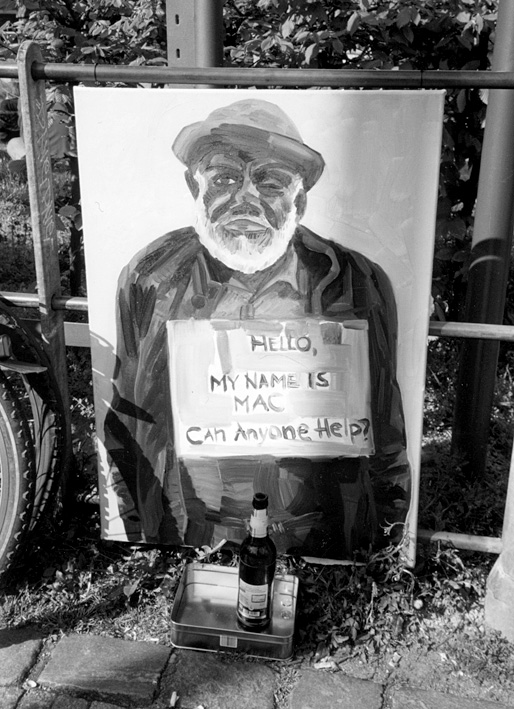 HELLO,
MY NAME IS
MAC
Can Anyone Help?